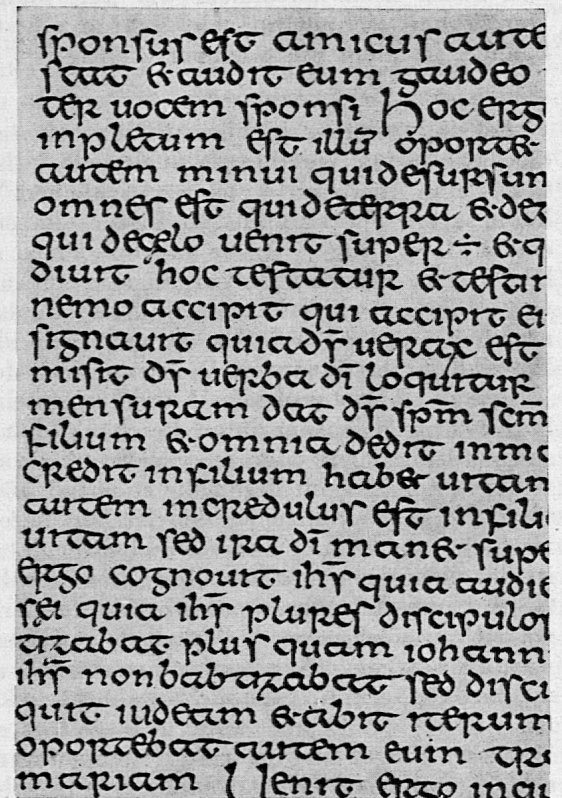 sponsus est amicus aute
stat & audit eum gaudeo
ter uocem sponsi Hoc erg
inpletum est illū oport&
autem minui qui desursun
omnes est qui deterra & de t
qui de cęlo uenit super ÷ & q
diuit hoc testatur & testi
nemo accipit qui accipit ei
signauit quia dr̄ uerax est
misit dr̄ uerba dī loquitur
mensuram dat dr̄ spm̄ scm̄
filium & omnia dedit in m
credit in filium hab& uitan
autem incredulus est in fili
uitam sed ira dī man& supe
ergo cognouit ihr̄ quia audie
sęi quia ihr̄ plures discipulos
azabat plus quam iohann
ihr̄ non babazabat sed disci
quit iudeam & abit iterum
oportebat autem eum tra
mariam Uenit ergo in ciu